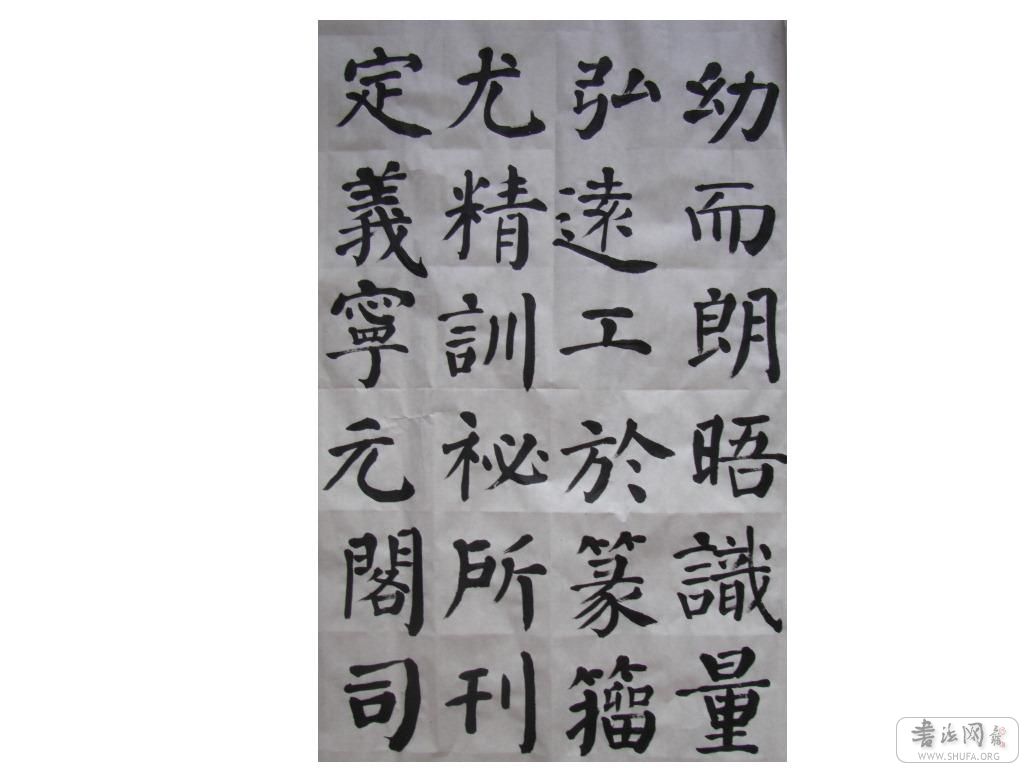 幼而朗晤識量
弘遠工於篆籀
尤精訓祕所刊
定義寧元閣司
书法网
WWW.SHUFA.ORG